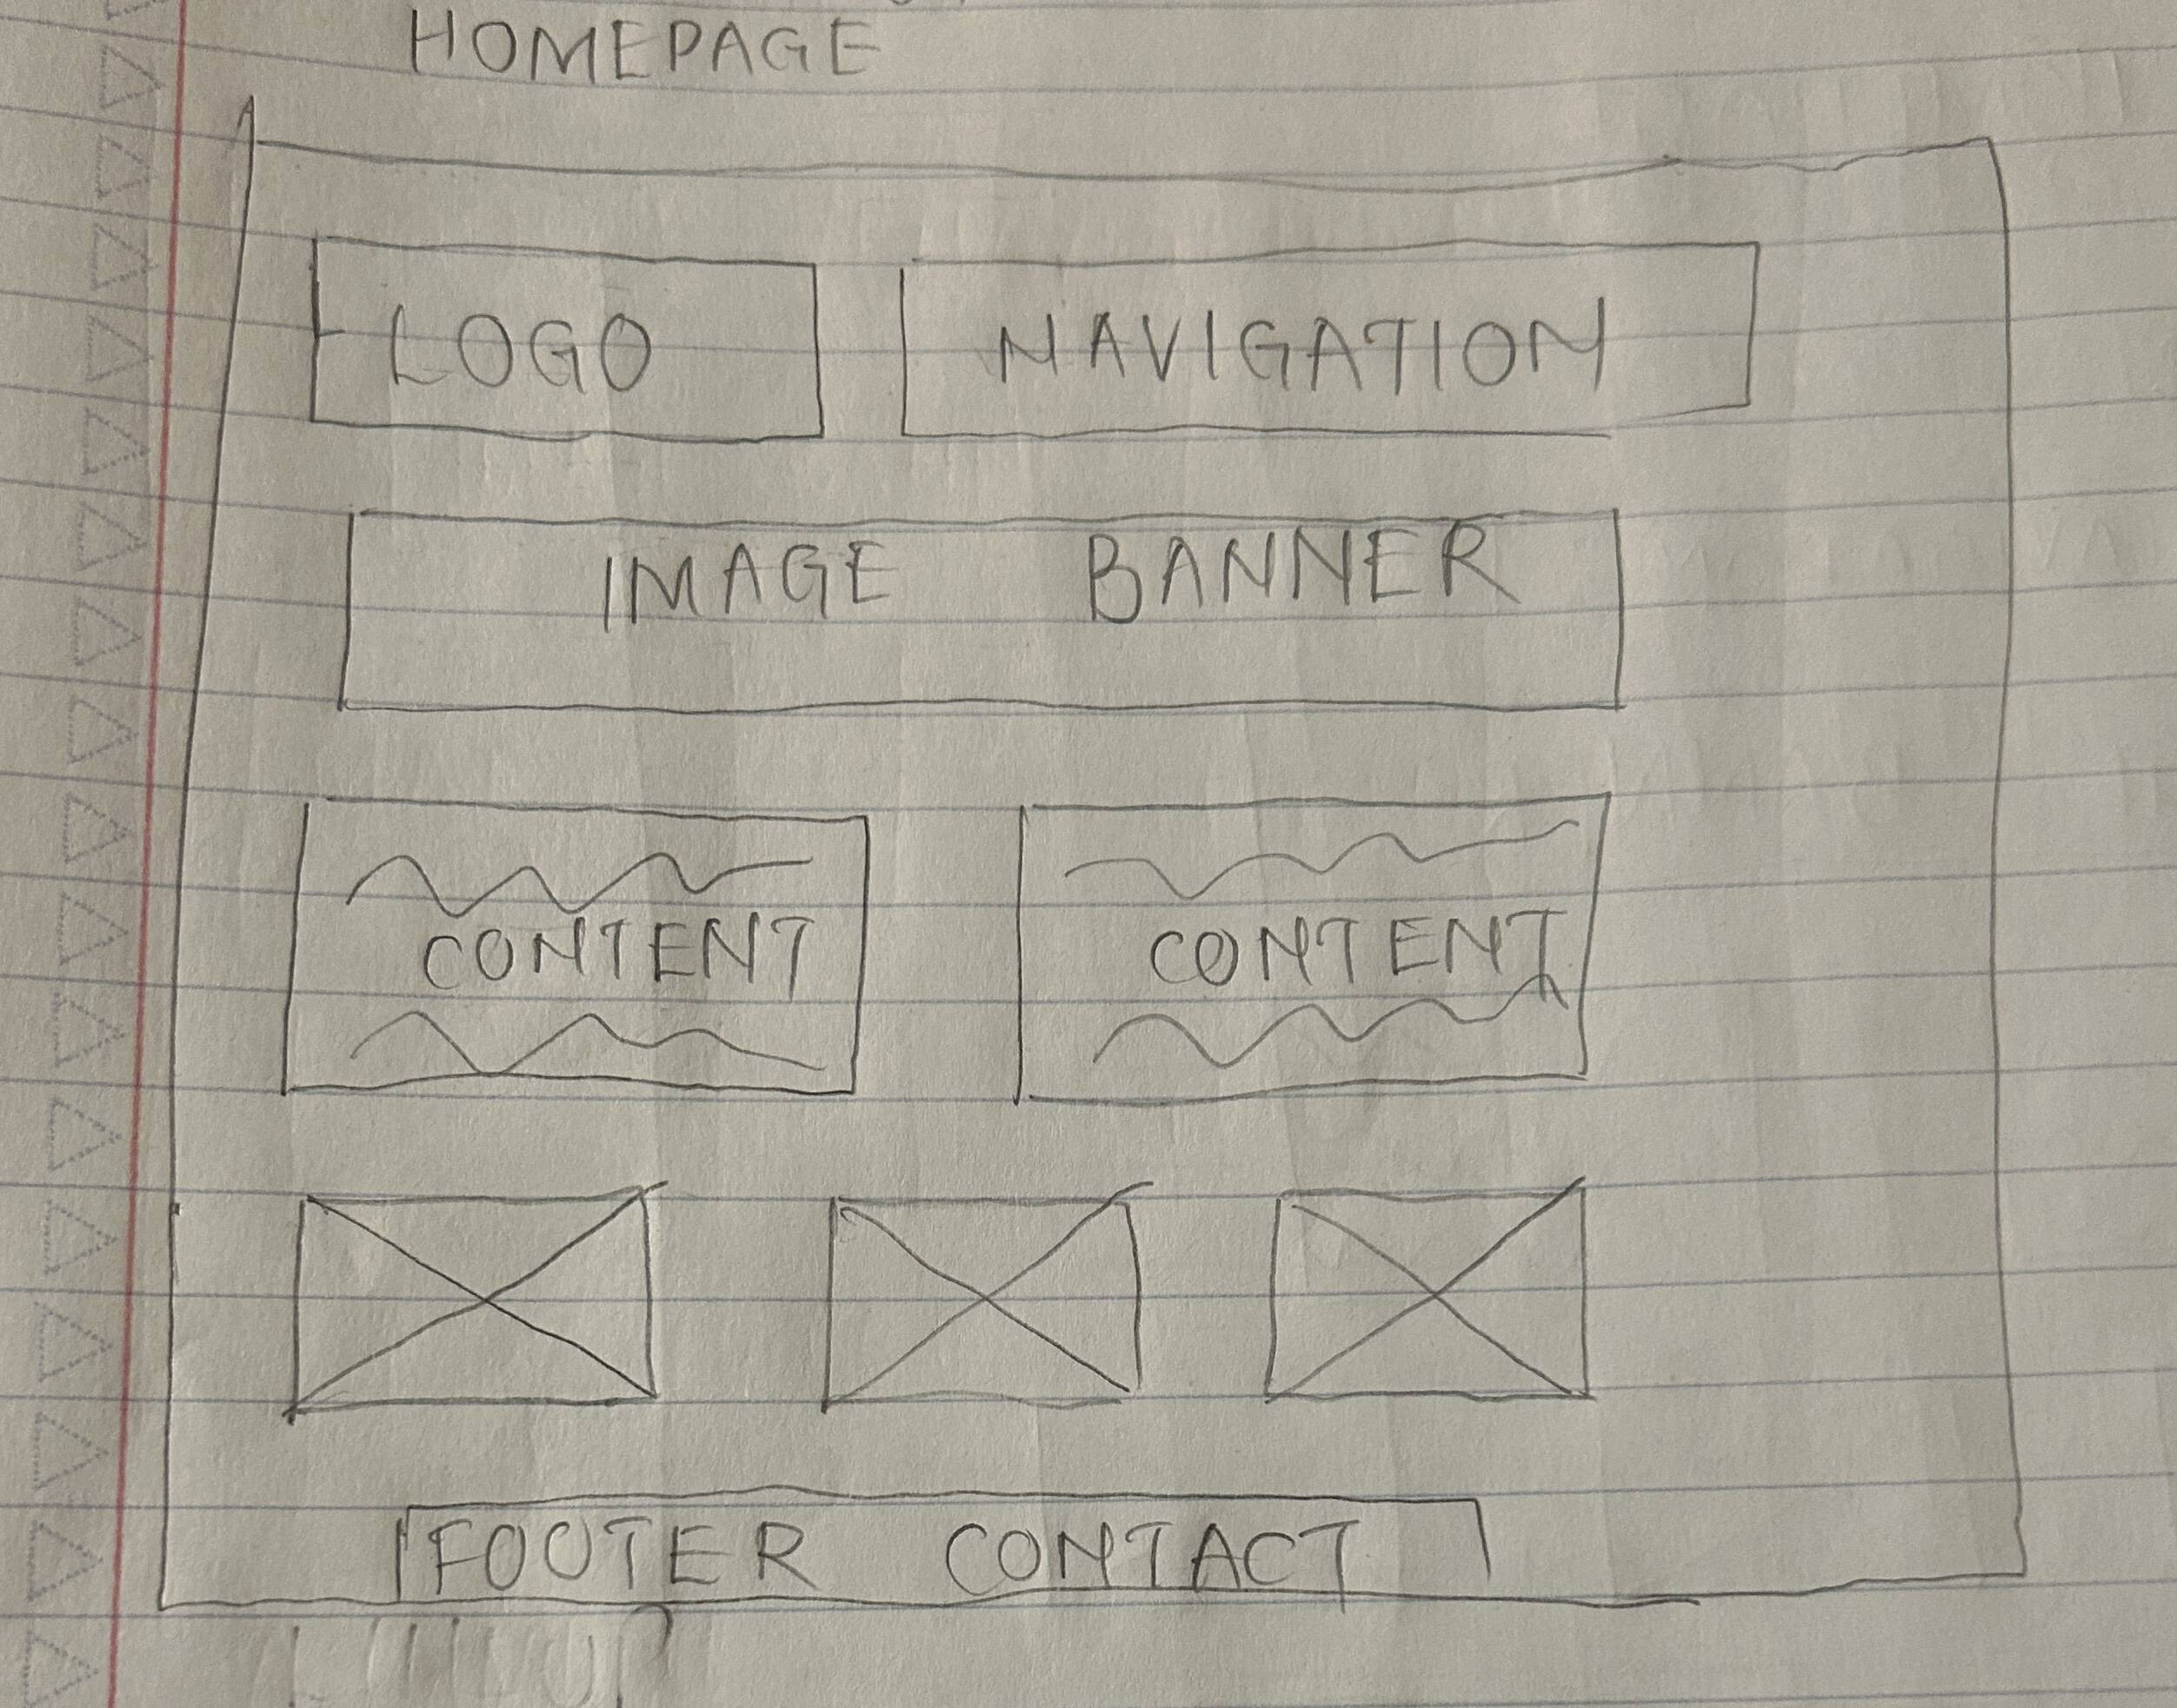 HOMEPAGE
LOGO NAVIGATION
IMAGE BANNER
CONTENT CONTENT
FOOTER CONTACT